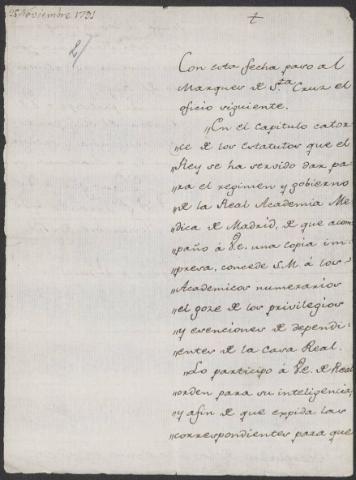 25 Noviembre 1791
†
2/
Con esta fecha paso al
Marques de S.ta Cruz el
oficio siguiente.
"En el Capitulo cator-
"ce de los Estatutos que el
"Rey se ha servido dar pa-
"ra el regimen y gobierno
"de la Real Academia Me-
"dica de Madrid, de que acom-
"paño á V.E. una copia im-
"presa, concede S.M. á los
"Academicos numerarios
"el goze de los privilegios
"y exenciones de dependi-
"entes de la Casa Real.
"Lo participo á V.E. de Real
"orden para su inteligencia,
"y afin de que expida las
"correspondientes para que